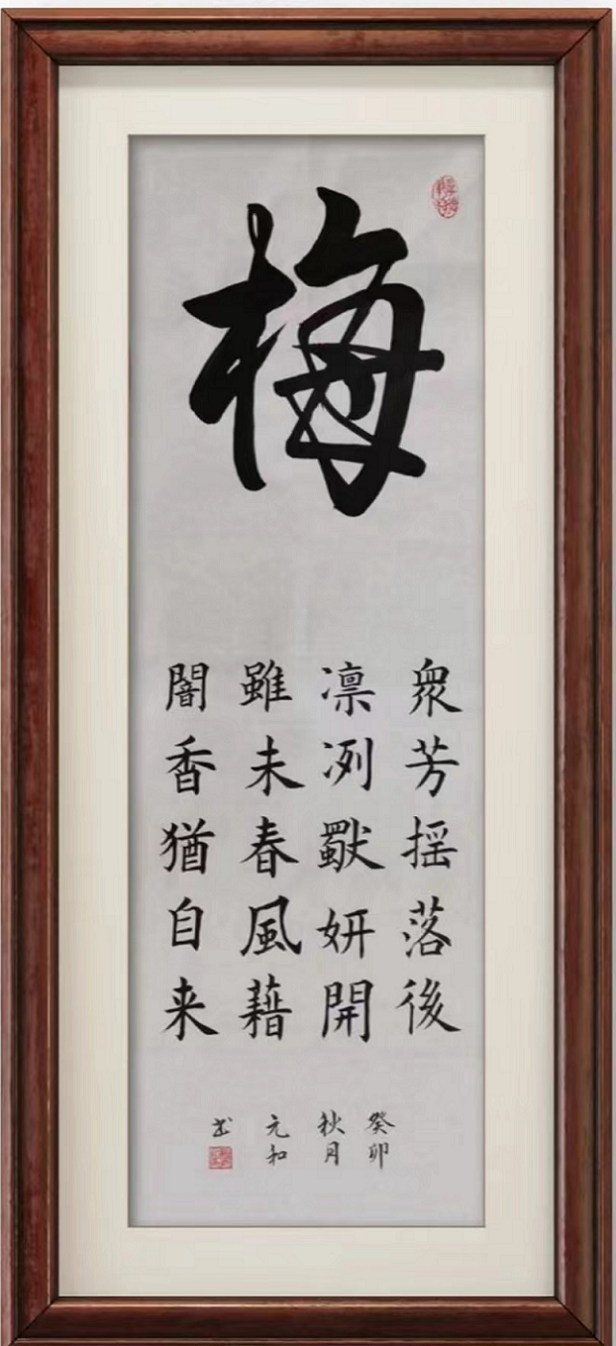 梅
衆芳摇落後
凛冽獨妍開
雖未春風藉
闇香猶自来
癸卯
秋月
元和
书